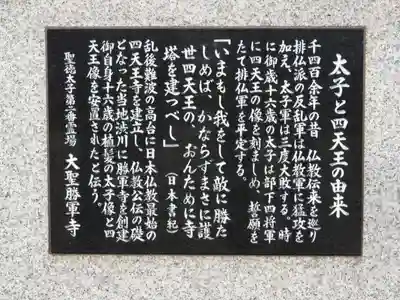 太子と四天王の由来
千四百余年の昔　仏教伝来を巡り
排仏派の反乱軍は仏教軍に猛攻を
加え、太子軍は三度大敗する。時
に御歳十六歳の太子は部下四将軍
に四天王の像を刻ましめ、誓願を
たて排仏軍を平定する。
「いまもし我をして敵に勝た
しめば、かならずまさに護
世四天王の、おんために寺
塔を建つべし」（日本書紀）
乱後難波の高台に日本仏教最初の
四天王寺を建立し、仏教公伝の礎
となった当地渋川に勝軍寺を創建
御自身十六歳の植髪の太子像と四
天王像を安置されたと伝う。
聖徳太子第二番霊場　大聖勝軍寺